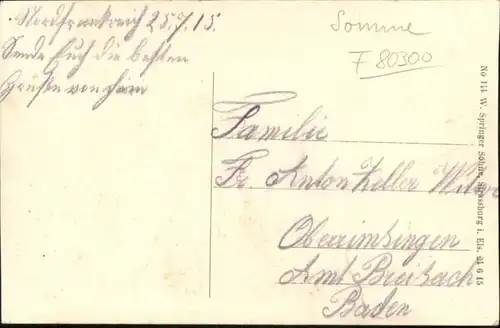 Nordfrankreich 25.7.15.
Sende Euch die besten
Grüße von hier
Somme
F 80300
Familie
Fr. Anton Keller Witwe
Oberrimsingen
Amt Breisach
Baden
No 144 W. Springer Söhne, Strassburg i. Els. 24 6 15